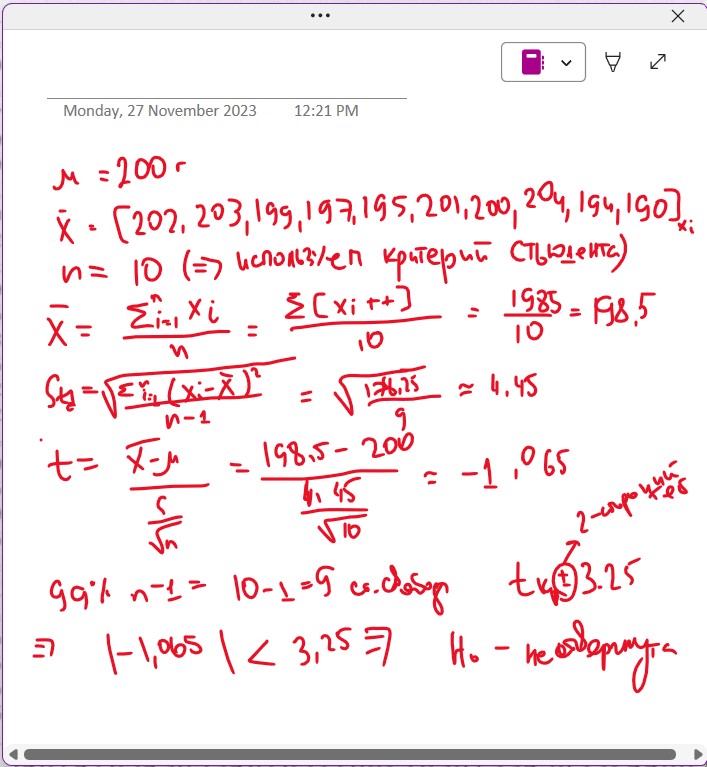 Monday, 27 November 2023 12:21 PM
μ = 200 г
x̄ = [202, 203, 199, 197, 195, 201, 200, 204, 194, 190] xi
n = 10 (=> использ/ем критерий Стьюдента)
X̄ = Σⁿi=1 xi / n = Σ[xi++] / 10 = 1985 / 10 = 198,5
= √(Σⁿi=1 (xi - x̄)² / n-1) = √( / 9) ≈ 4.45
t = (x̄ - μ) / (s / √n) = (198,5 - 200) / (4,45 / √10) = -1,065
2-сторонний
99% n-1 = 10-1 = 9 ст.свобод tкр ± 3.25
=> |-1,065| < 3,25 => H₀ - не отвергнута